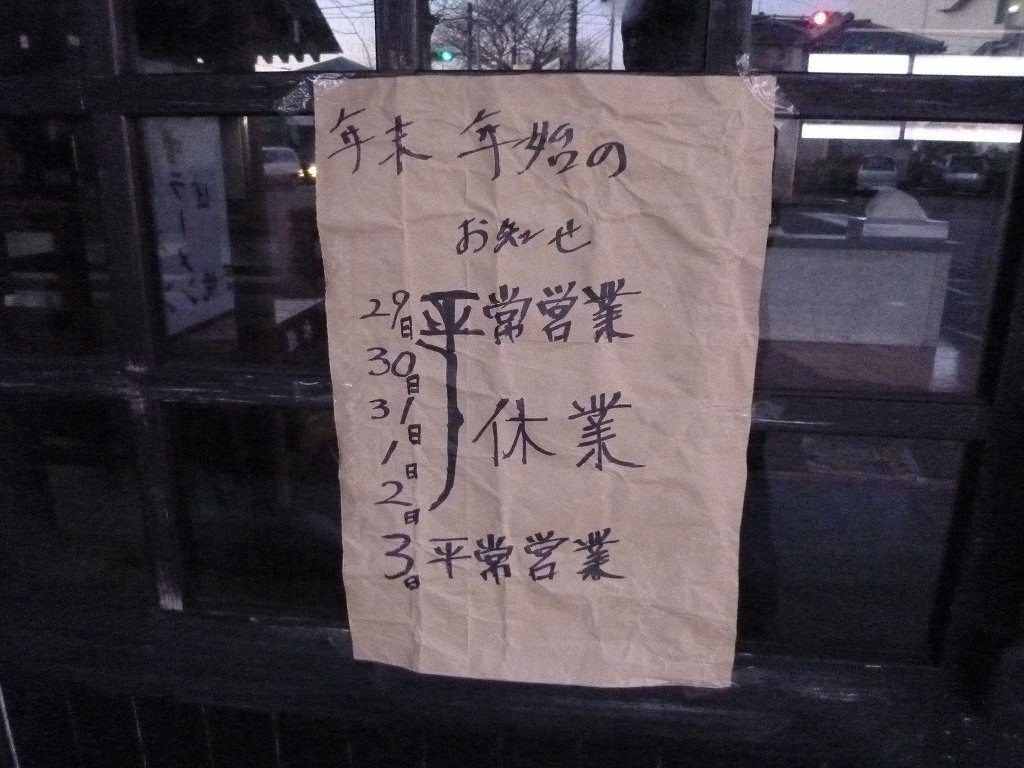 年末 年始の
お知せ
29日 平常営業
30日
31日 休業
1日
2日
3日 平常営業